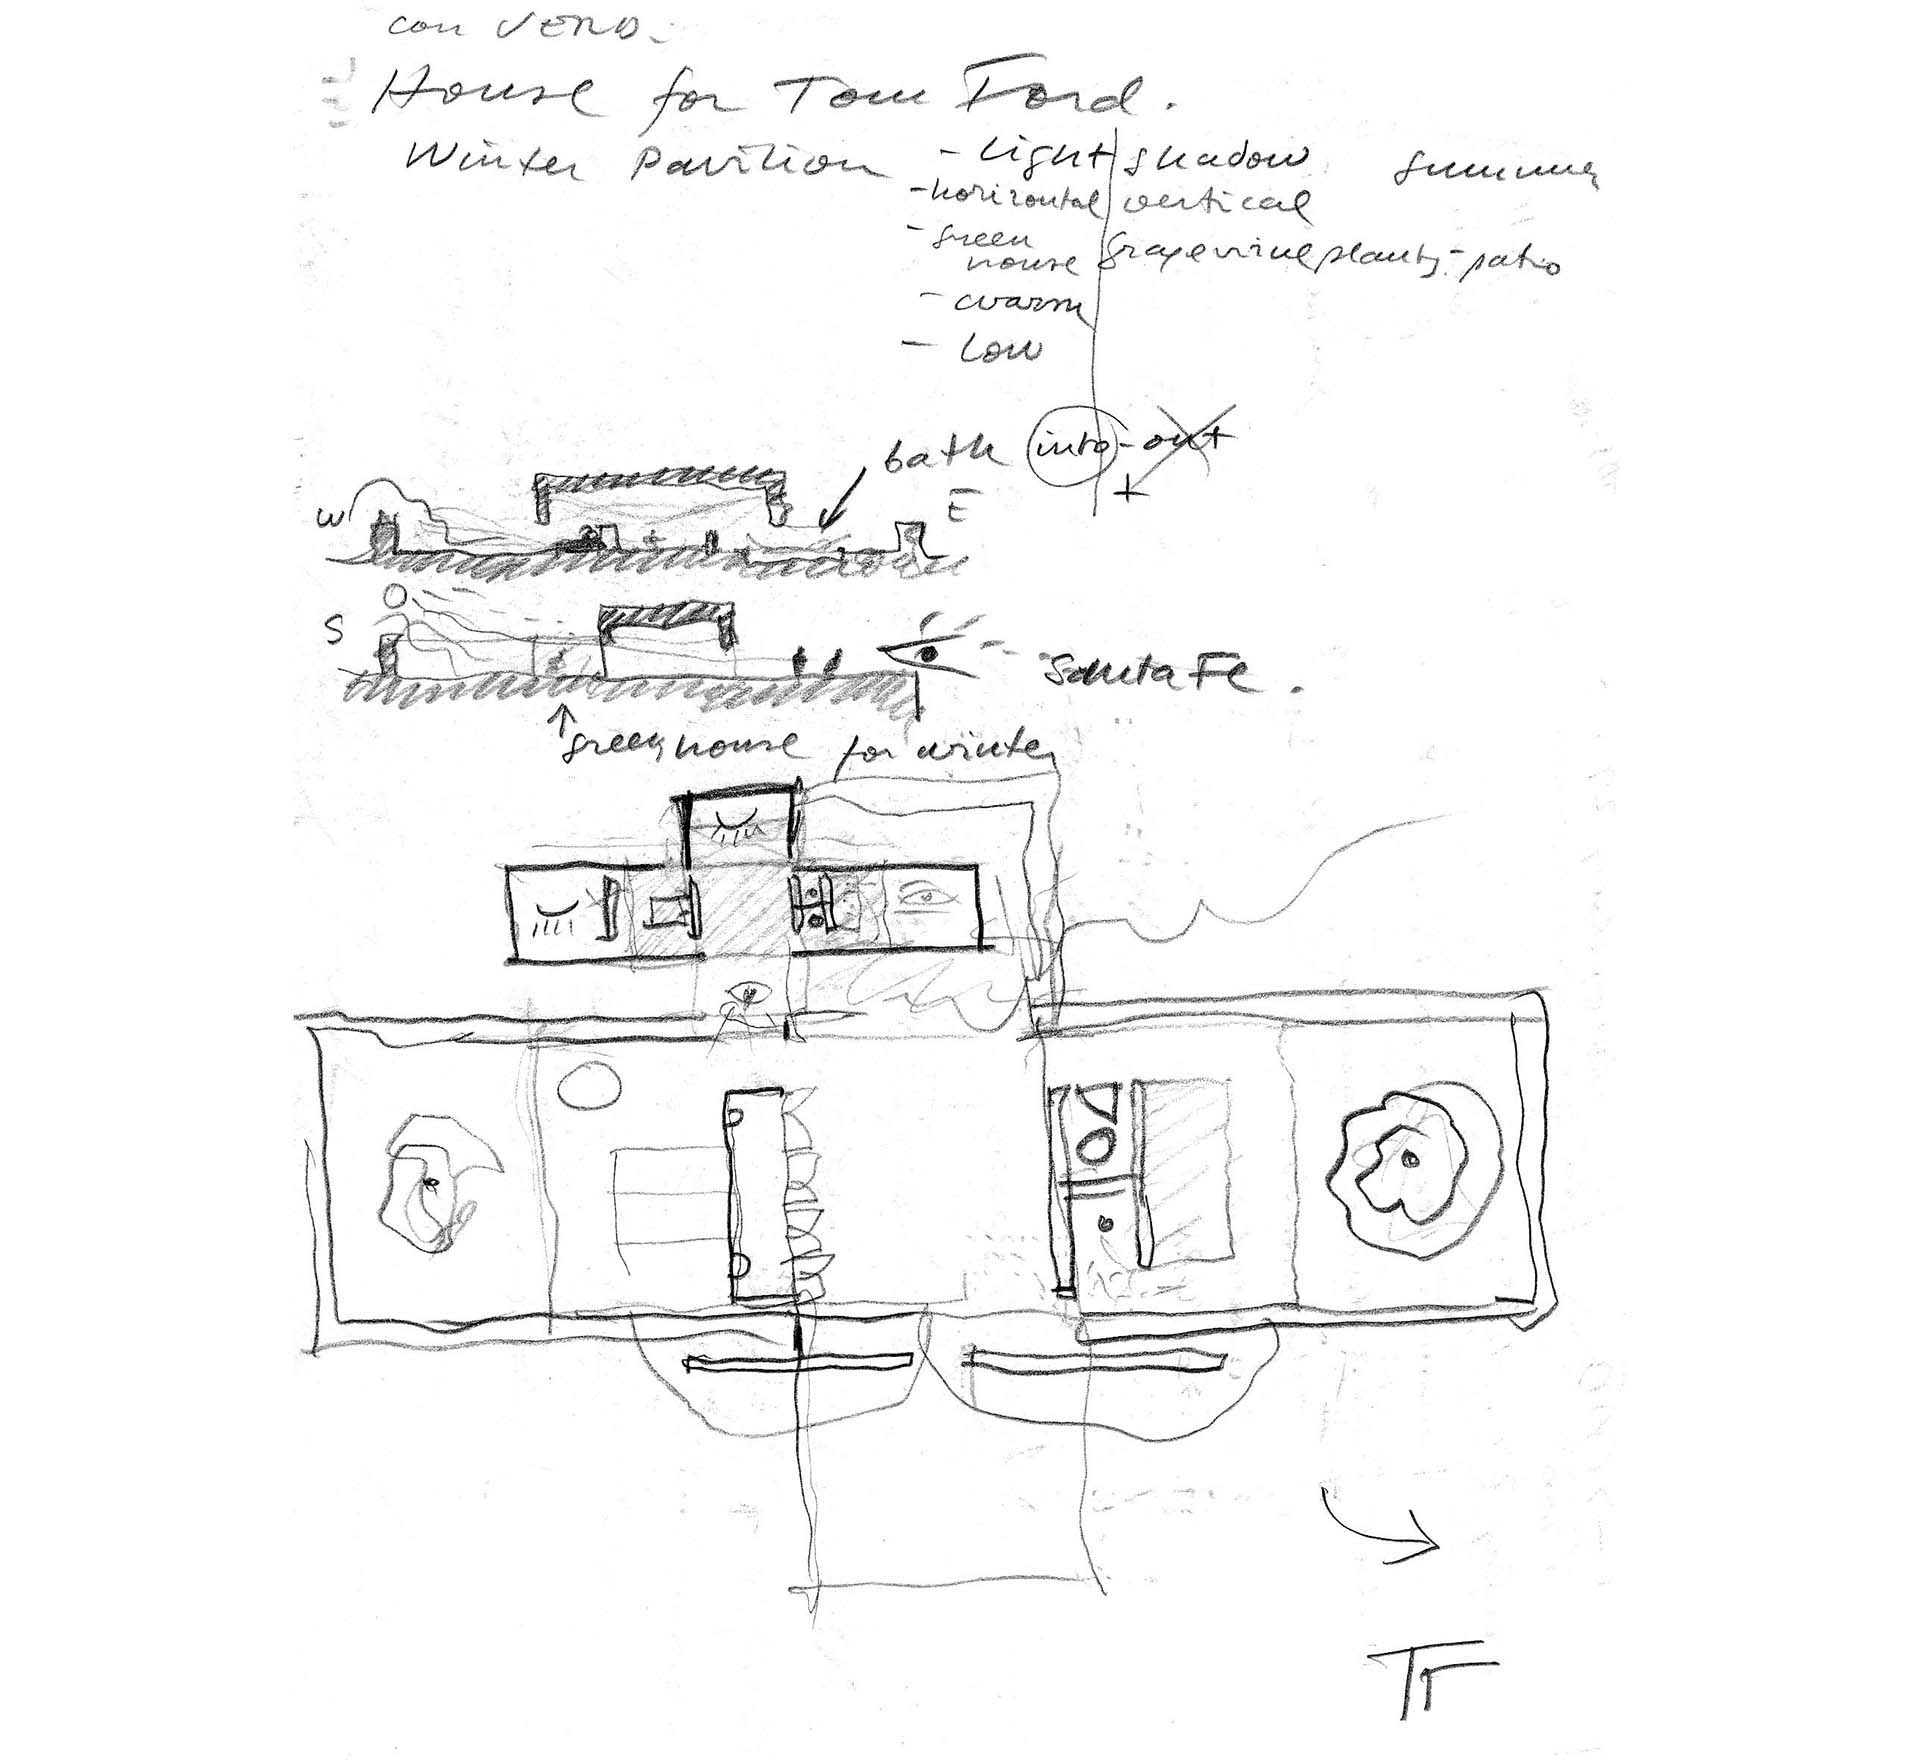 con VERO.
House for Tom Ford.
Winter Pavilion - light shadow summer
- horizontal vertical
- green house grapevine plants - patio
- warm
- Low
bath into - out
+
W E
S
Santa Fe.
greenhouse for winter
TF